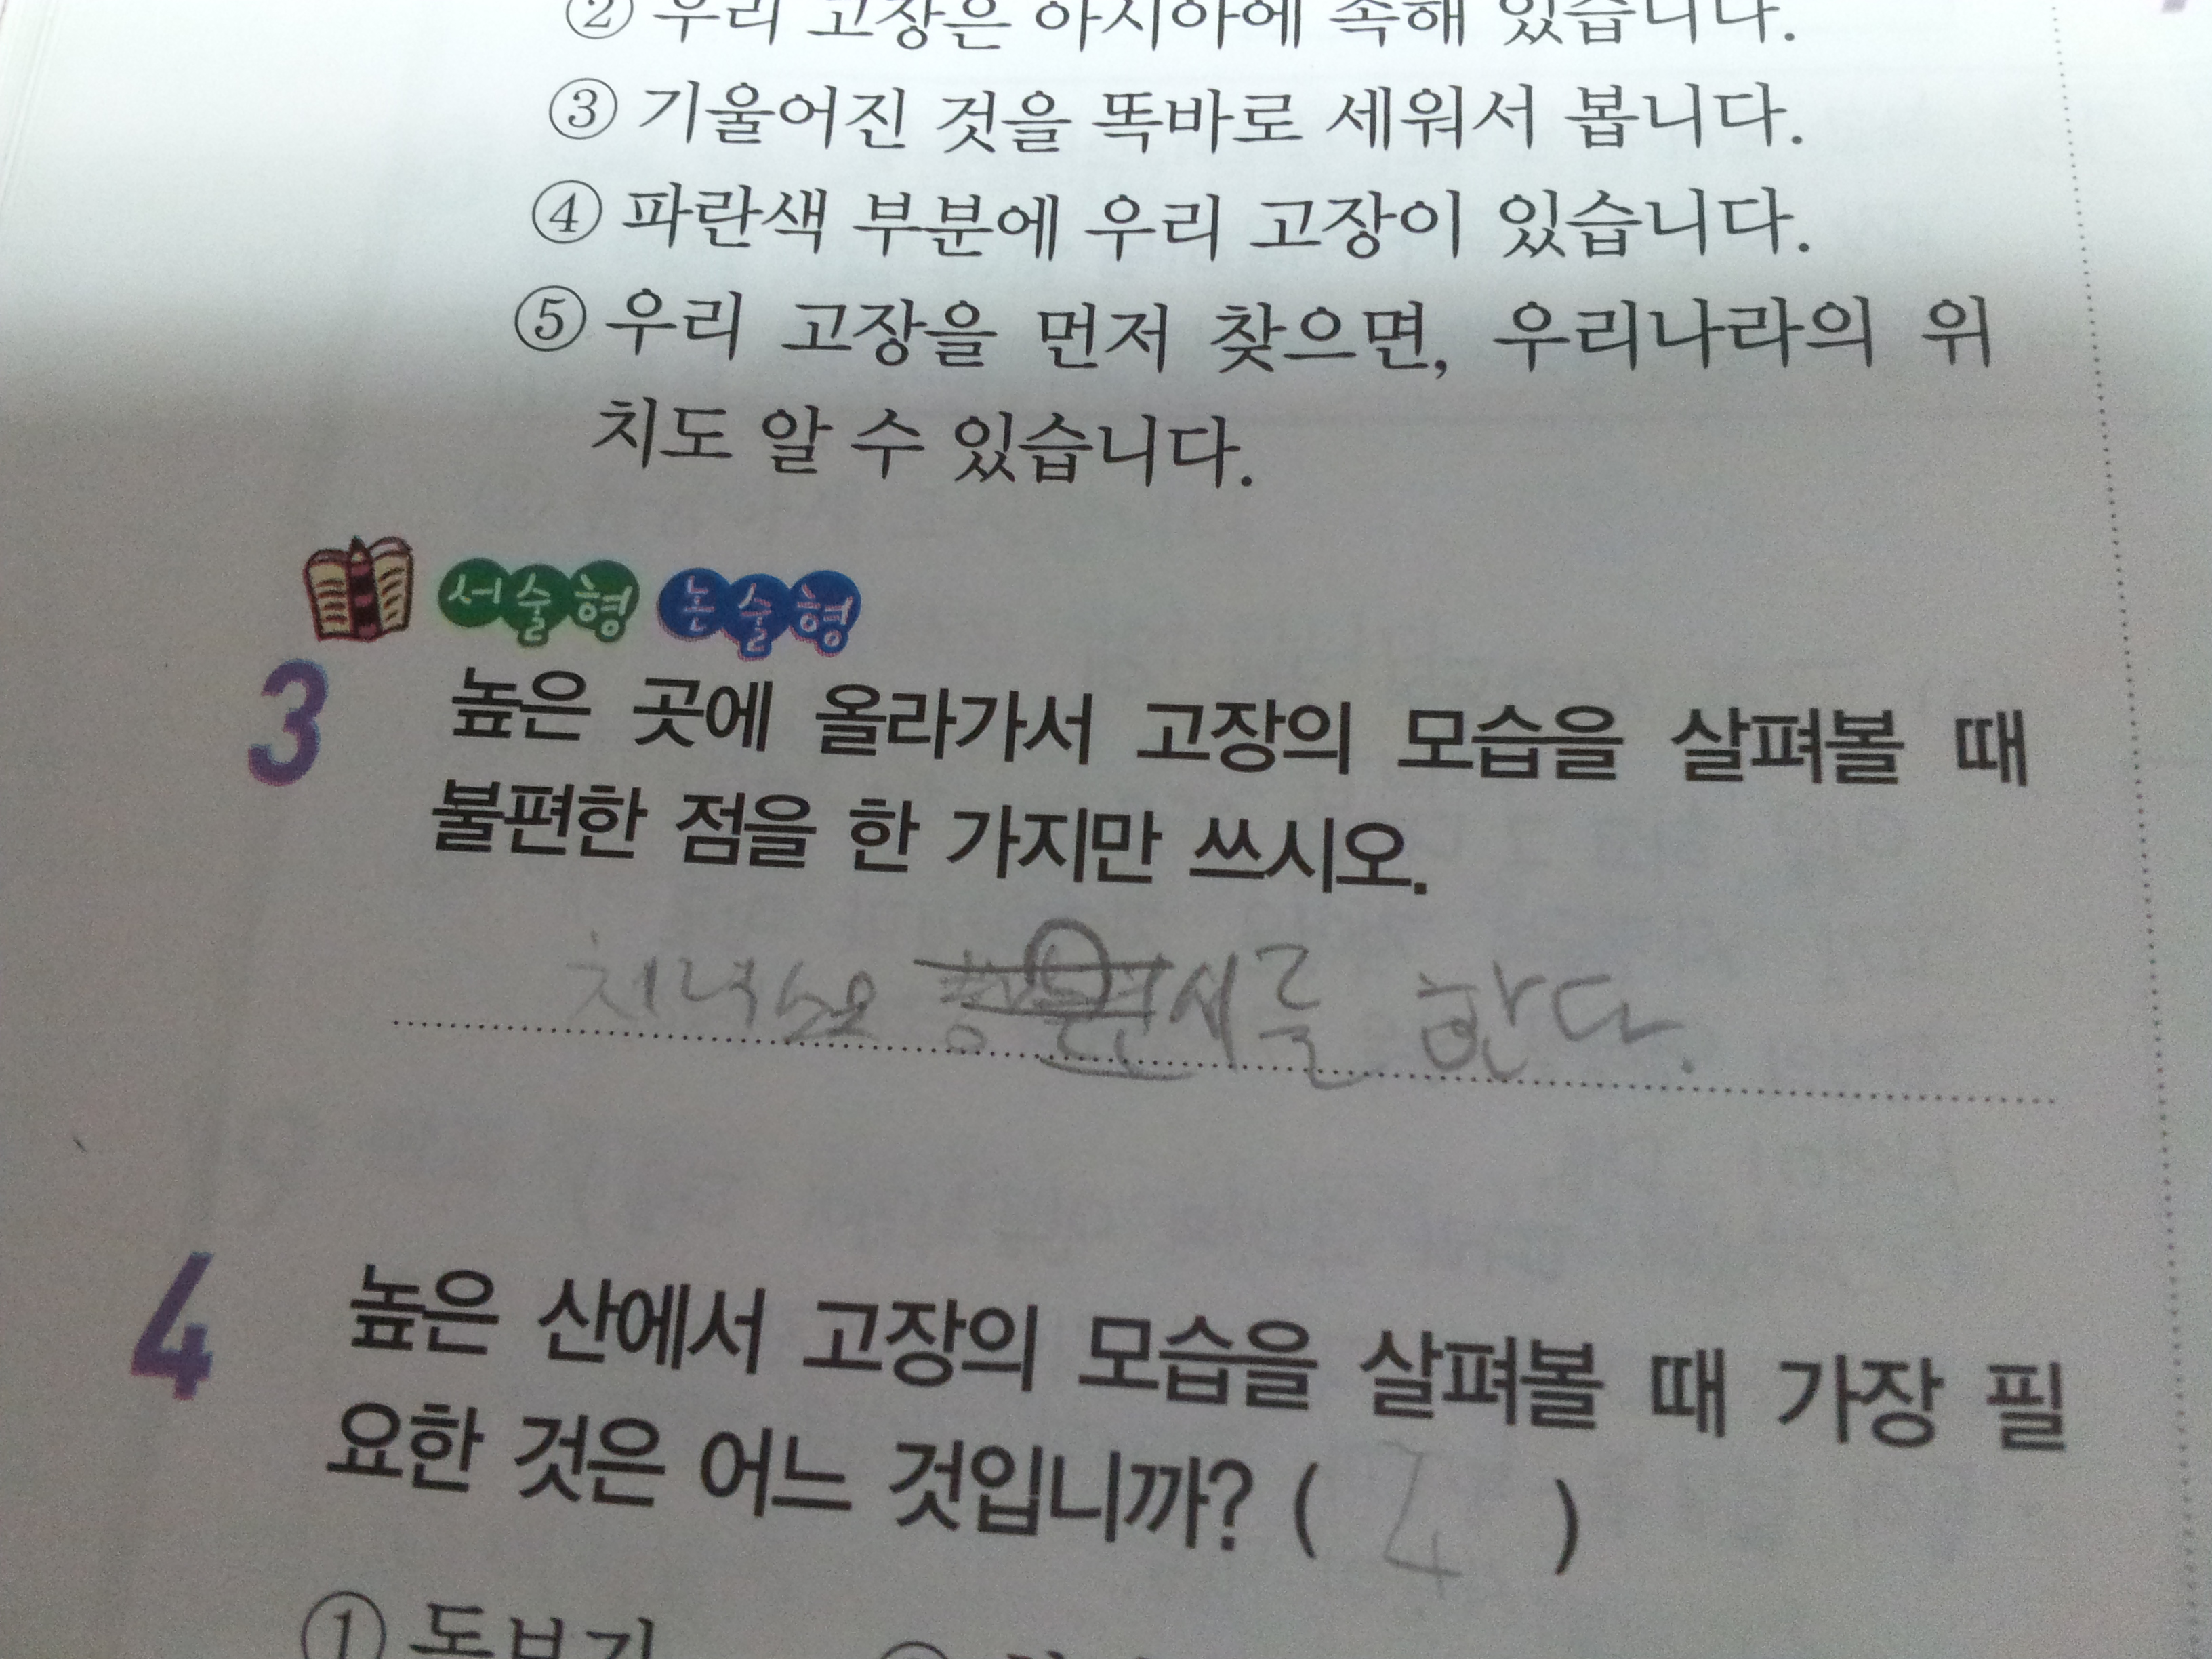 ② 우리 고장은 아시아에 속해 있습니다.
③ 기울어진 것을 똑바로 세워서 봅니다.
④ 파란색 부분에 우리 고장이 있습니다.
⑤ 우리 고장을 먼저 찾으면, 우리나라의 위
치도 알 수 있습니다.
서술형 논술형
3 높은 곳에 올라가서 고장의 모습을 살펴볼 때
불편한 점을 한 가지만 쓰시오.
한다.
4 높은 산에서 고장의 모습을 살펴볼 때 가장 필
요한 것은 어느 것입니까? ( 4 )
① 돋보기